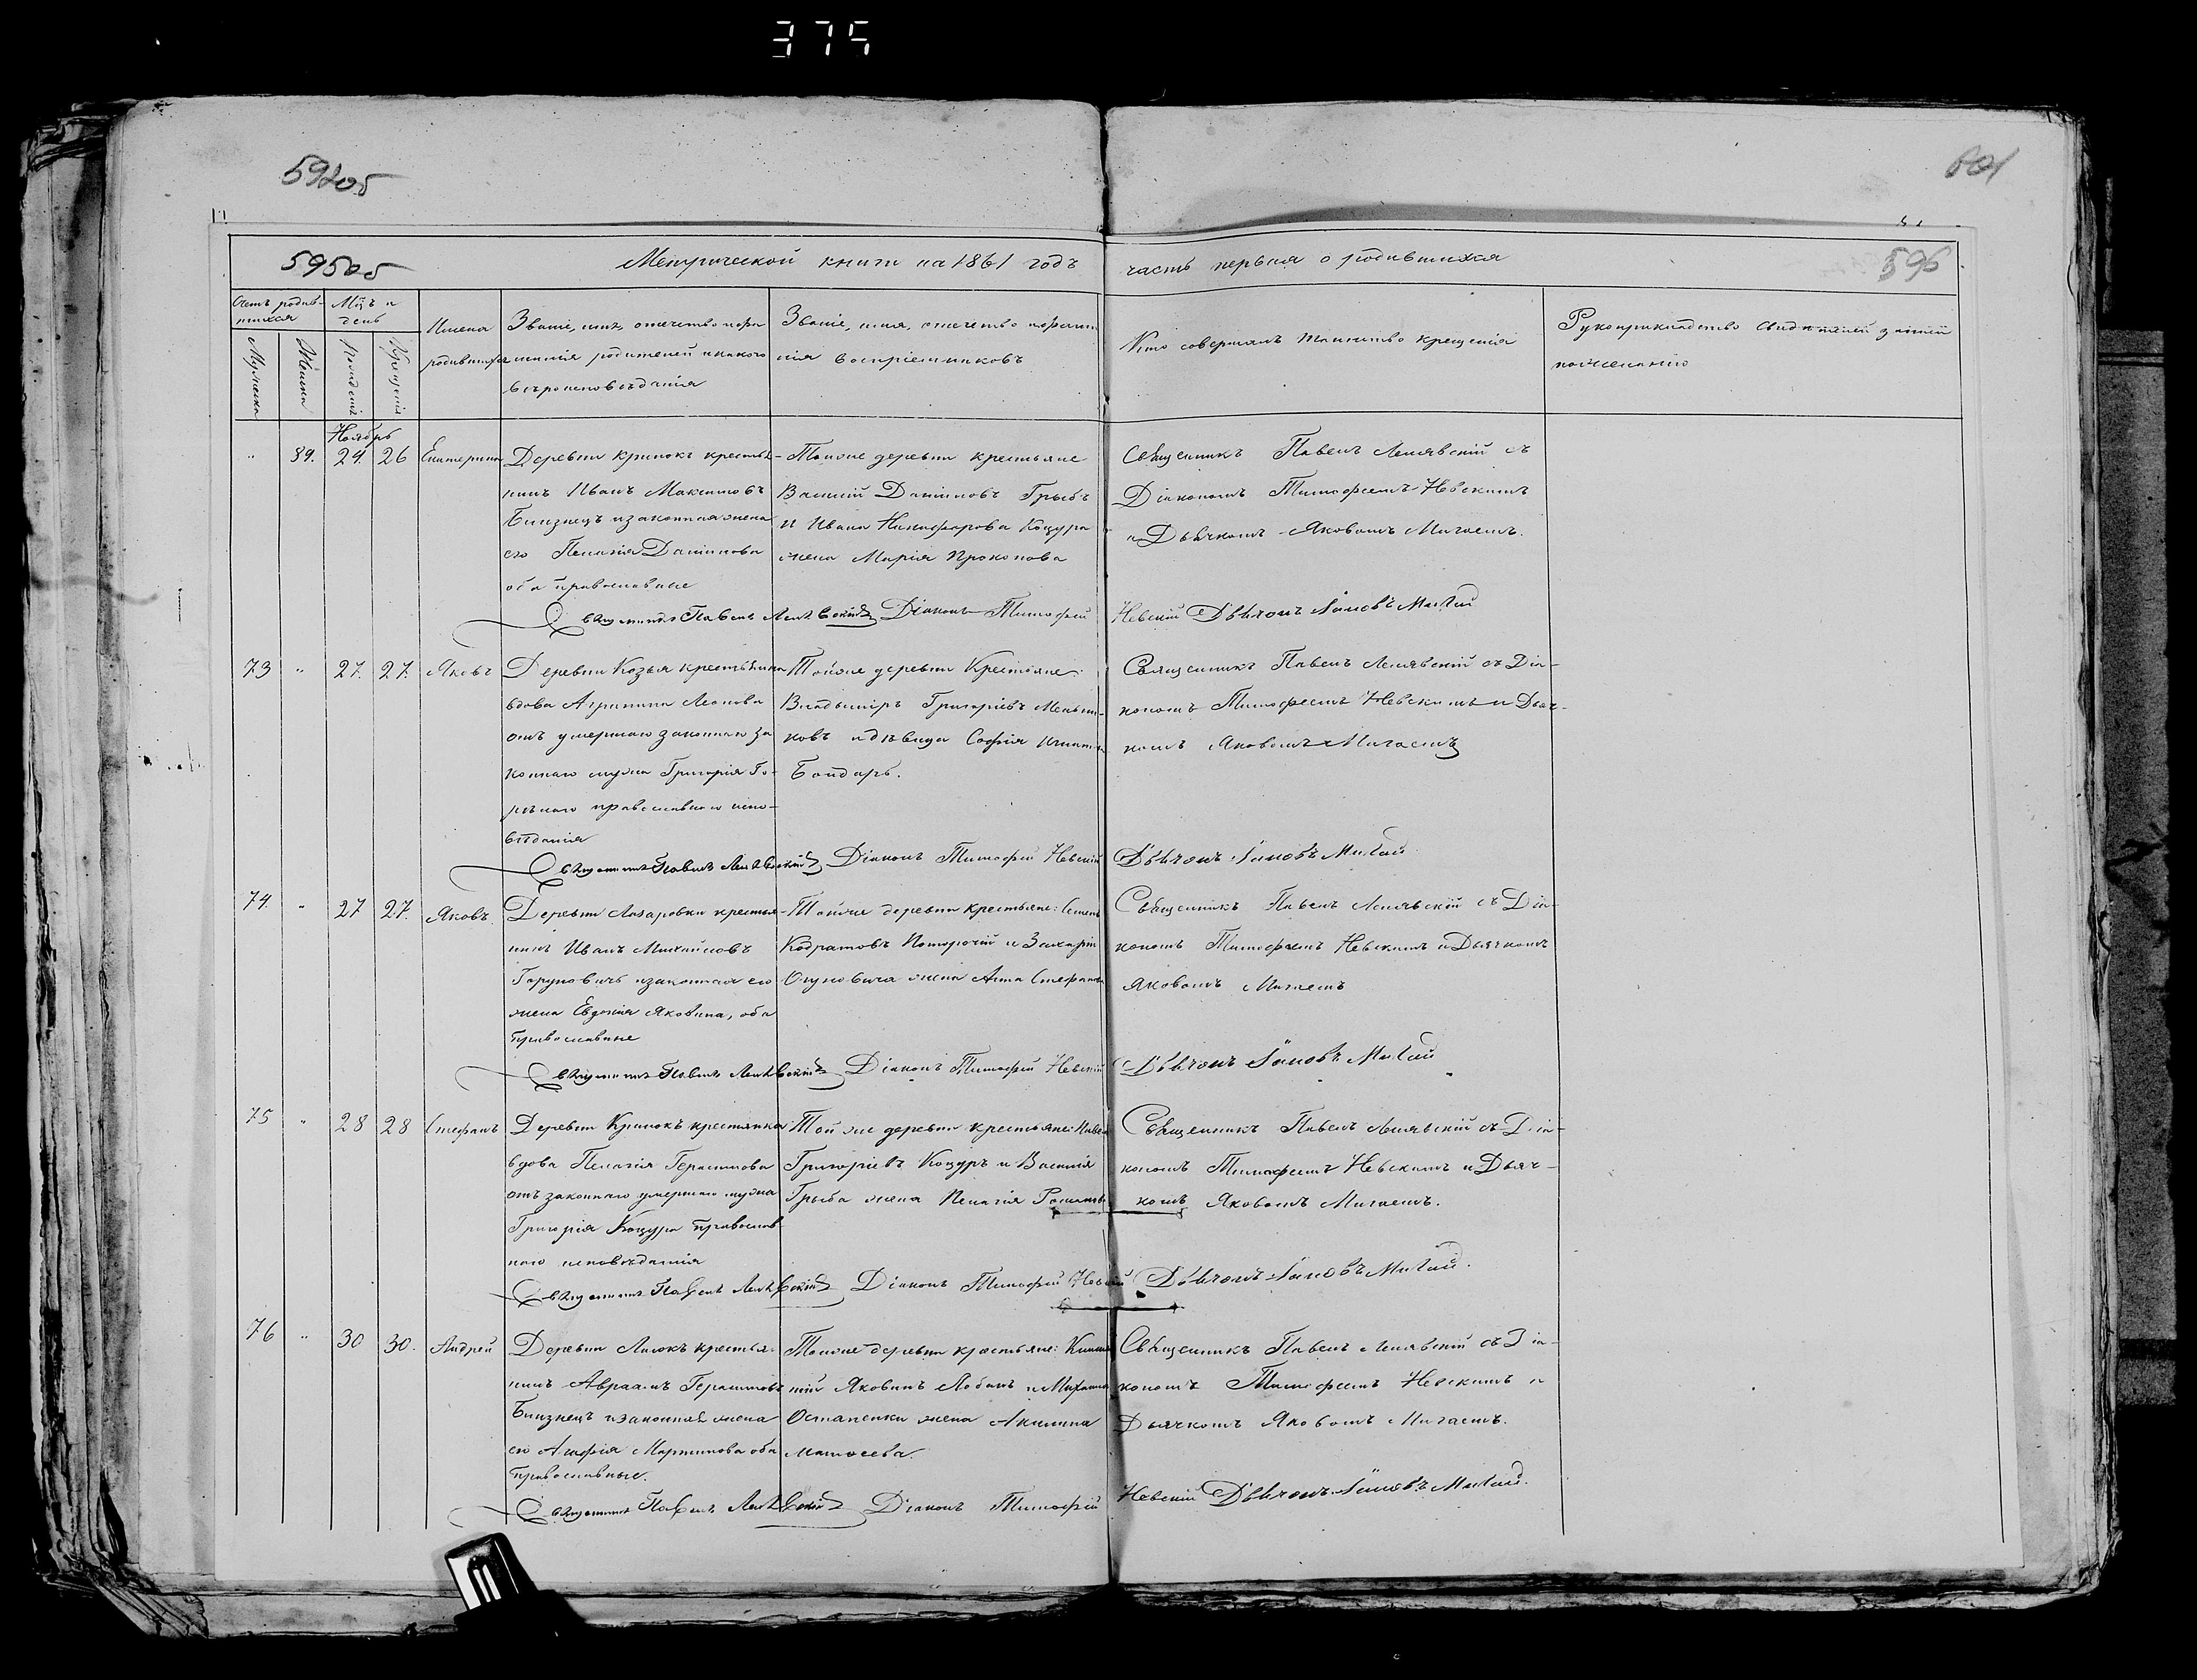 375
592об
601
595об
Метрической книги на 1861 годъ часть первая о родившихся
596
Счетъ родив-
шихся
Мцъ и
день
Имена
родившихся
Званіе, имя, отечество и фа
милія родителей и какого
вѣроисповѣданія
Званіе, имя, отечество и фамил
нія воспріемниковъ
Кто совершалъ таинство крещенія
Рукоприкладство свидѣтелей записи
по желанію
Мужска
Женска
Рожденія
Крещенія
Ноябрь
" 89. 24. 26 Екатерина
Деревни Кринокъ крестья-
нинъ Иванъ Максимовъ
Близнецъ и законная жена
его Пелагія Даніилова
оба православные
Тойже деревни крестьяне
Василій Даніиловъ Грыбъ
и Ивана Никифорова Коцура
жена Марія Прокопова
Священникъ Павелъ Лешявскій съ
Діакономъ Тимофеемъ Невскимъ
и Дьячкомъ Яковомъ Мигаемъ.
Священникъ Павелъ Діаконъ Тимофей Невскій Дьячокъ Яковъ Мигай
73 " 27. 27. Яковъ
Деревни Козья крестьянка
вдова Агрипина Леонова
отъ умершаго законнаго за
коннаго мужа Григорія Го-
рѣлаго православнаго испо-
вѣданія
Тойже деревни Крестьяне:
Владиміръ Григоріевъ Меньши-
ковъ и дѣвица Софія Игнатія
Бондаръ.
Священникъ Павелъ Лешявскій съ Діа-
кономъ Тимофеемъ Невскимъ и Дьяч-
комъ Яковомъ Мигаемъ
Священникъ Павелъ Діаконъ Тимофей Невскій Дьячокъ Яковъ Мигай
74. " 27 27. Яковъ.
Деревни Лазаровки крестья-
нинъ Иванъ Михайловъ
Горуновичъ и законная его
жена Евдокія Яковина, оба
православные
Тойже деревни крестьяне: Семенъ
Кодратовъ и Захарія
Окуновича жена Анна Стефанова
Священникъ Павелъ Лешявскій съ Діа-
кономъ Тимофеемъ Невскимъ и Дьячкомъ
Яковомъ Мигаемъ
Священникъ Павелъ Діаконъ Тимофей Невскій Дьячокъ Яковъ Мигай
75 " 28 28 Стефанъ
Деревни Кринокъ крестянка
вдова Пелагія Герасимова
отъ законнаго умершаго мужа
Григорія Коцура православ-
наго исповѣданія
Той же деревни крестьяне: Павелъ
Григоріевъ Коцуръ и Василія
Грыба жена Пелагія Романова
Священникъ Павелъ Лешявскій съ Діа-
кономъ Тимофеемъ Невскимъ и Дьяч-
комъ Яковомъ Мигаемъ.
Священникъ Павелъ Діаконъ Тимофей Невскій Дьячокъ Яковъ Мигай.
76 " 30 30. Андрей
Деревни Лисокъ крестья-
нинъ Авраамъ Герасимовъ
Близнецъ и законная жена
его Агафія Мартинова оба
православные.
Тойже деревни крестьяне:
Яковинъ Лобанъ и Михаила
Остапенки жена Акилина
Матѳеева.
Священникъ Павелъ Лешявскій съ Діа-
кономъ Тимофеемъ Невскимъ и
Дьячкомъ Яковомъ Мигаемъ.
Священникъ Павелъ Діаконъ Тимофей Невскій Дьячокъ Яковъ Мигай.